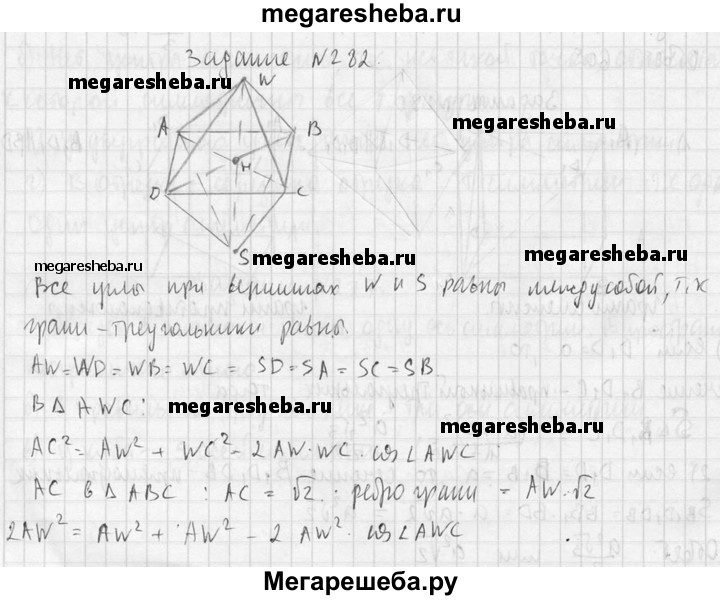 megaresheba.ru
Задание №282.
W
megaresheba.ru
A
B
megaresheba.ru
H
D
C
S
megaresheba.ru
megaresheba.ru
megaresheba.ru
Все углы при вершинах W и S равны между собой, т.к
грани-треугольники равны.
AW=WD=WB=WC = SD=SA=SC=SB.
В Δ AWC:
megaresheba.ru
megaresheba.ru
AC² = AW² + WC² - 2AW·WC cos∠AWC
AC в Δ ABC : AC = √2 · ребро грани = AW·√2
2AW² = AW² + AW² - 2 AW² · cos∠AWC
Мегарешеба.ру